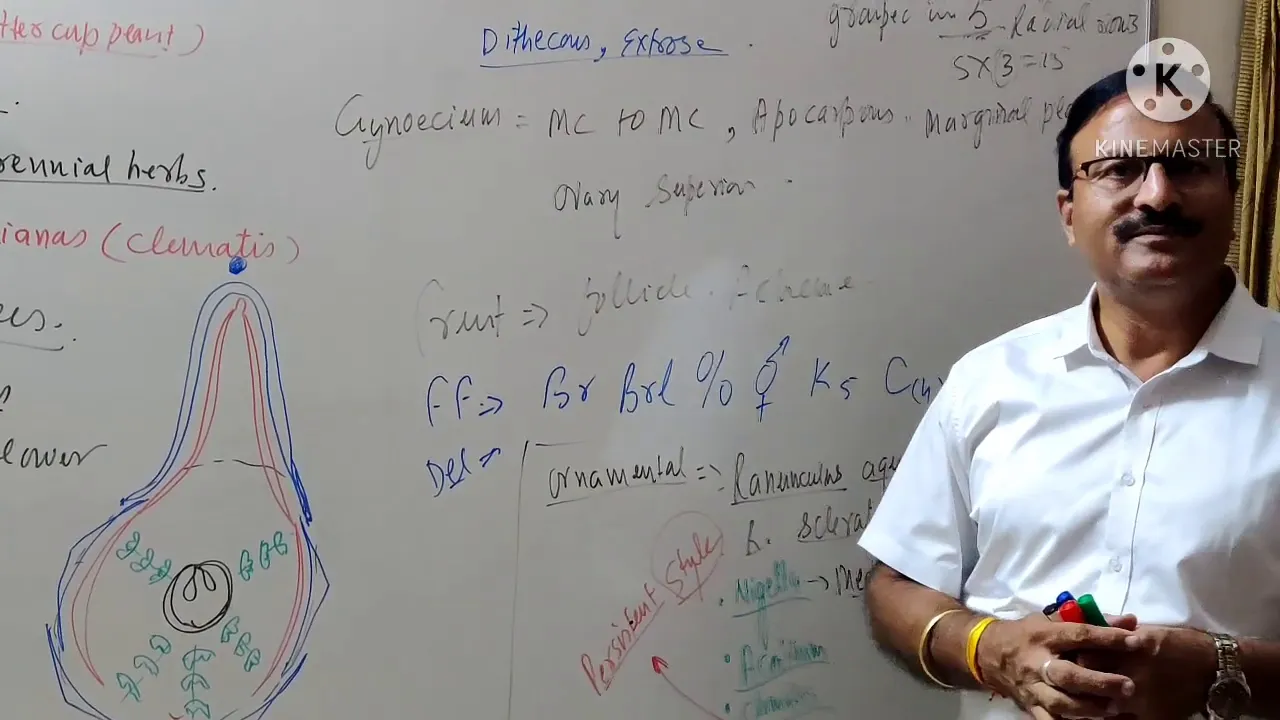 tter cup plant)
rennial herbs.
ianas (Clematis)
es.
lower
Dithecous, Extrose.
grouped in 5 Radial rows
5X3=15
Gynoecium = MC to MC, Apocarpous. Marginal
Ovary Superior.
Fruit => follicle. Acheme
FF=> Br Brl % ⚥ K5 C(4)
Del =>
Ornamental =>: Ranunculus aqu
R. Sclerat
. Nigella → Me
. Aconitum
.
Persistent Style
K
KINEMASTER